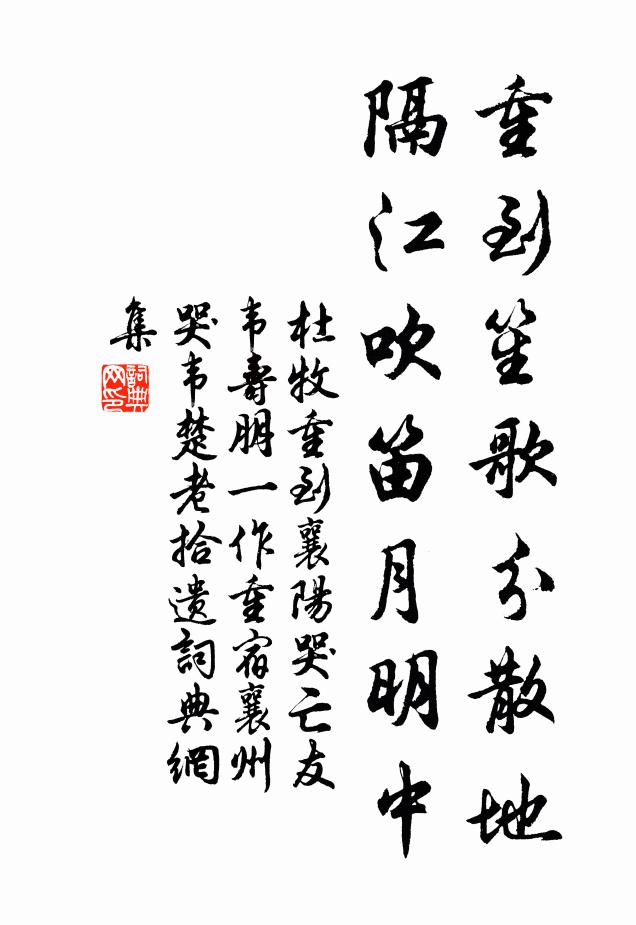 重到笙歌分散地
隔江吹笛月明中
杜牧重到襄陽哭亡友
韦壽朋一作重宿襄州
哭韦楚老拾遗詞典網
集
詞典
网印